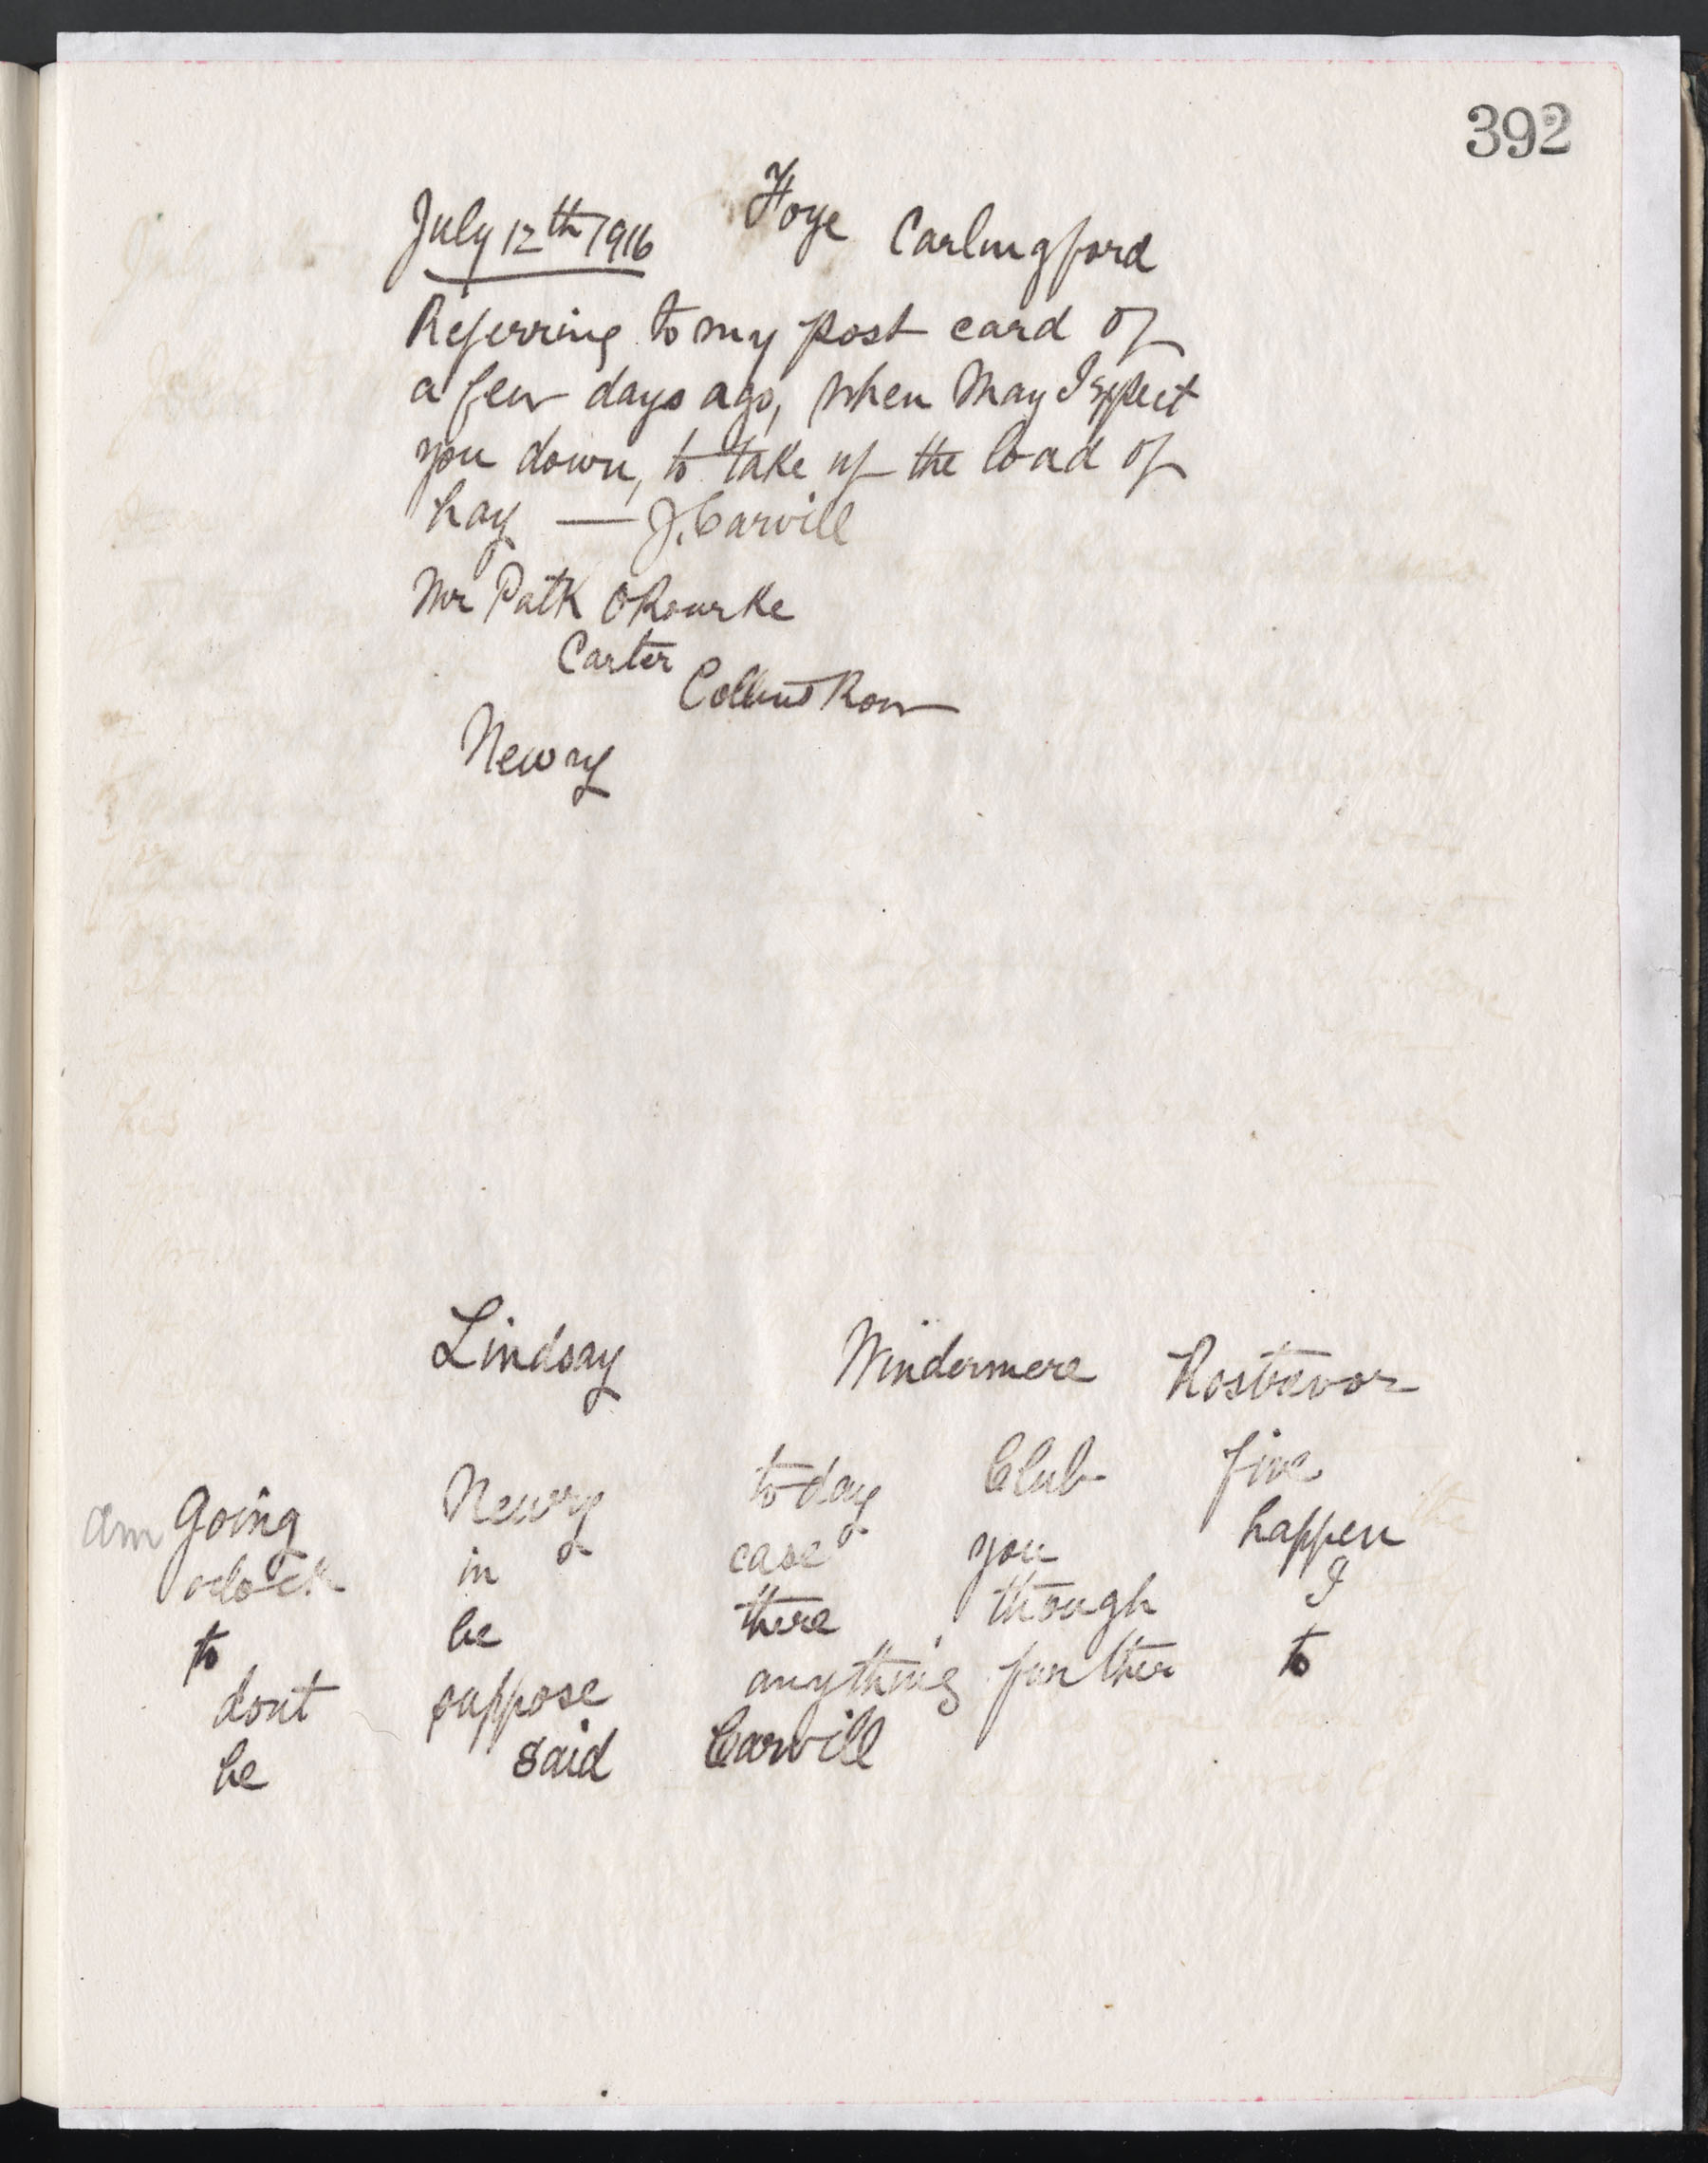 392
July 12th 1916 Foye Carlingford
Referring to my post card of
a few days ago, when may I expect
you down, to take up the load of
hay — J. Carvill
Mr Patk ORourke
Carter
Collins Row
Newry
Lindsay Windermere Rostrevor
am going Newry today Club five
oclock in case you happen
to be there, though I
dont suppose anything further to
be said Carvill